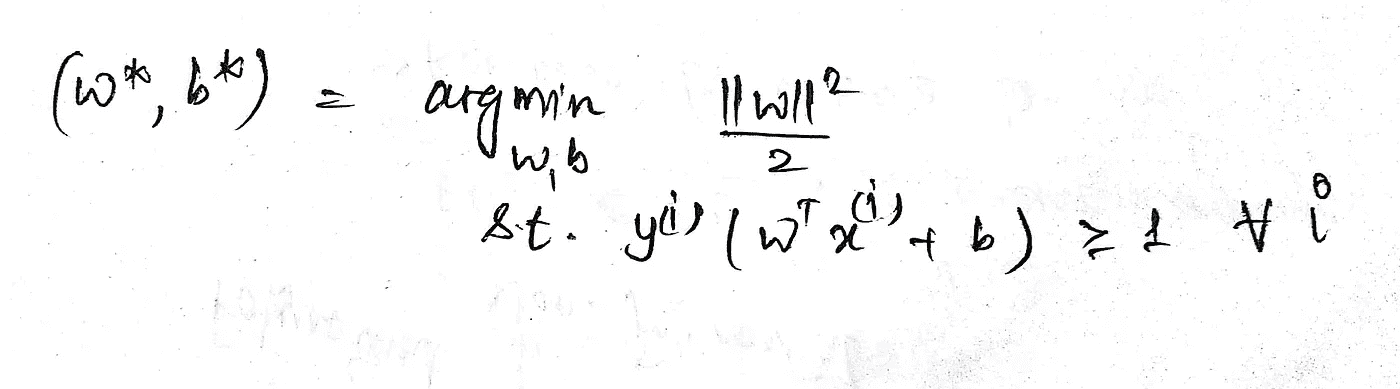 (w*, b*) = argmin ||w||²/2
w, b
s.t. y⁽ⁱ⁾ (wᵀ x⁽ⁱ⁾ + b) ≥ 1 ∀ i